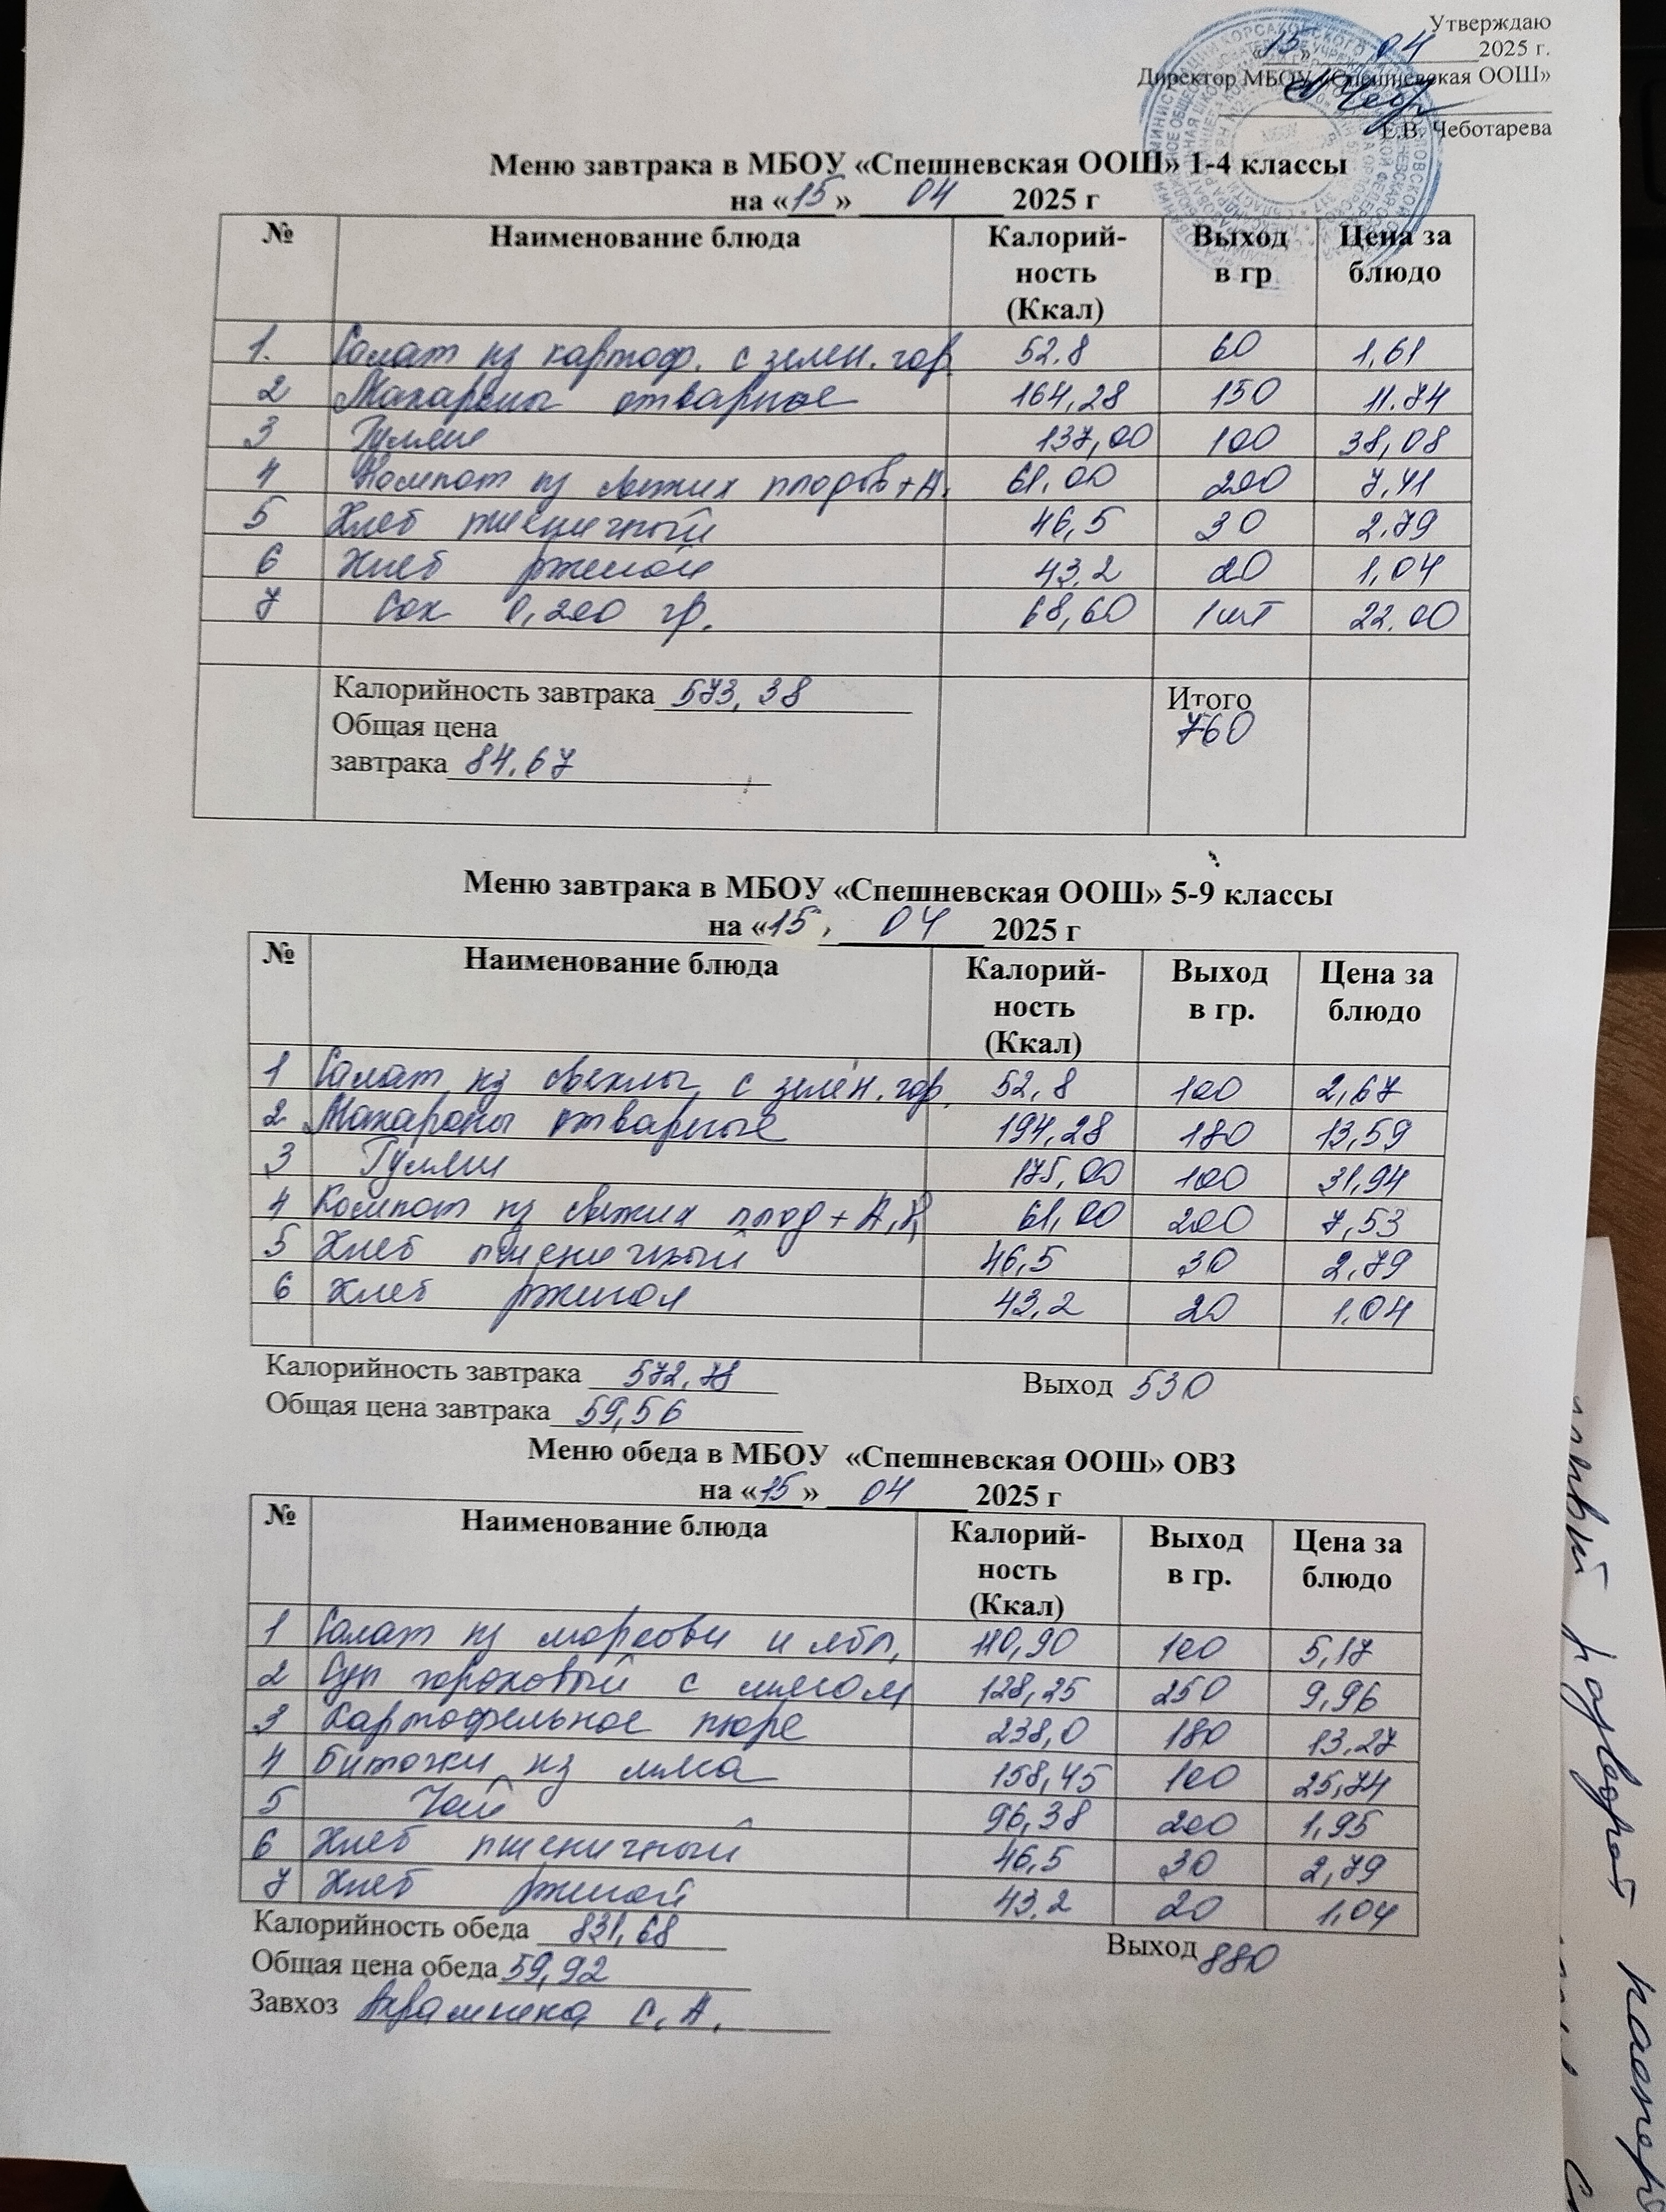 Утверждаю
«15» 04 2025 г.
Директор МБОУ «Спешневская ООШ»
Е.В. Чеботарева
Меню завтрака в МБОУ «Спешневская ООШ» 1-4 классы
на «15» 04 2025 г
№ Наименование блюда Калорий-ность (Ккал) Выход в гр Цена за блюдо
1. Салат из картоф. с зелен. гор. 52.8 60 1,61
2 Макароны отварные 164,28 150 11.74
3 Гуляш 137,00 100 38,08
4 Компот из свежих плодов+А. 61,00 200 7,41
5 Хлеб пшеничный 46,5 30 2,79
6 Хлеб ржаной 43,2 20 1,04
7 Сок 0,200 гр. 68,60 1 шт 22.00
Калорийность завтрака 573,38 Итого
Общая цена 760
завтрака 84.67
Меню завтрака в МБОУ «Спешневская ООШ» 5-9 классы
на «15» 04 2025 г
№ Наименование блюда Калорий-ность (Ккал) Выход в гр. Цена за блюдо
1 Салат из свеклы с зелен. гор. 52,8 100 2,67
2 Макароны отварные 194,28 180 13,59
3 Гуляш 175,00 100 31,94
4 Компот из свежих плод + А, 61,00 200 7,53
5 Хлеб пшеничный 46,5 30 2,79
6 Хлеб ржаной 43,2 20 1.04
Калорийность завтрака 572,78 Выход 530
Общая цена завтрака 59,56
Меню обеда в МБОУ «Спешневская ООШ» ОВЗ
на «15» 04 2025 г
№ Наименование блюда Калорий-ность (Ккал) Выход в гр. Цена за блюдо
1 Салат из моркови и ябл, 110,90 100 5,17
2 Суп гороховый с мясом 128,25 250 9,96
3 Картофельное пюре 238,0 180 13,27
4 Биточки из мяса 158,45 100 25,74
5 Чай 96,38 200 1,95
6 Хлеб пшеничный 46,5 30 2,79
7 Хлеб ржаной 43.2 20 1,04
Калорийность обеда 831,68 Выход 880
Общая цена обеда 59,92
Завхоз С. А.